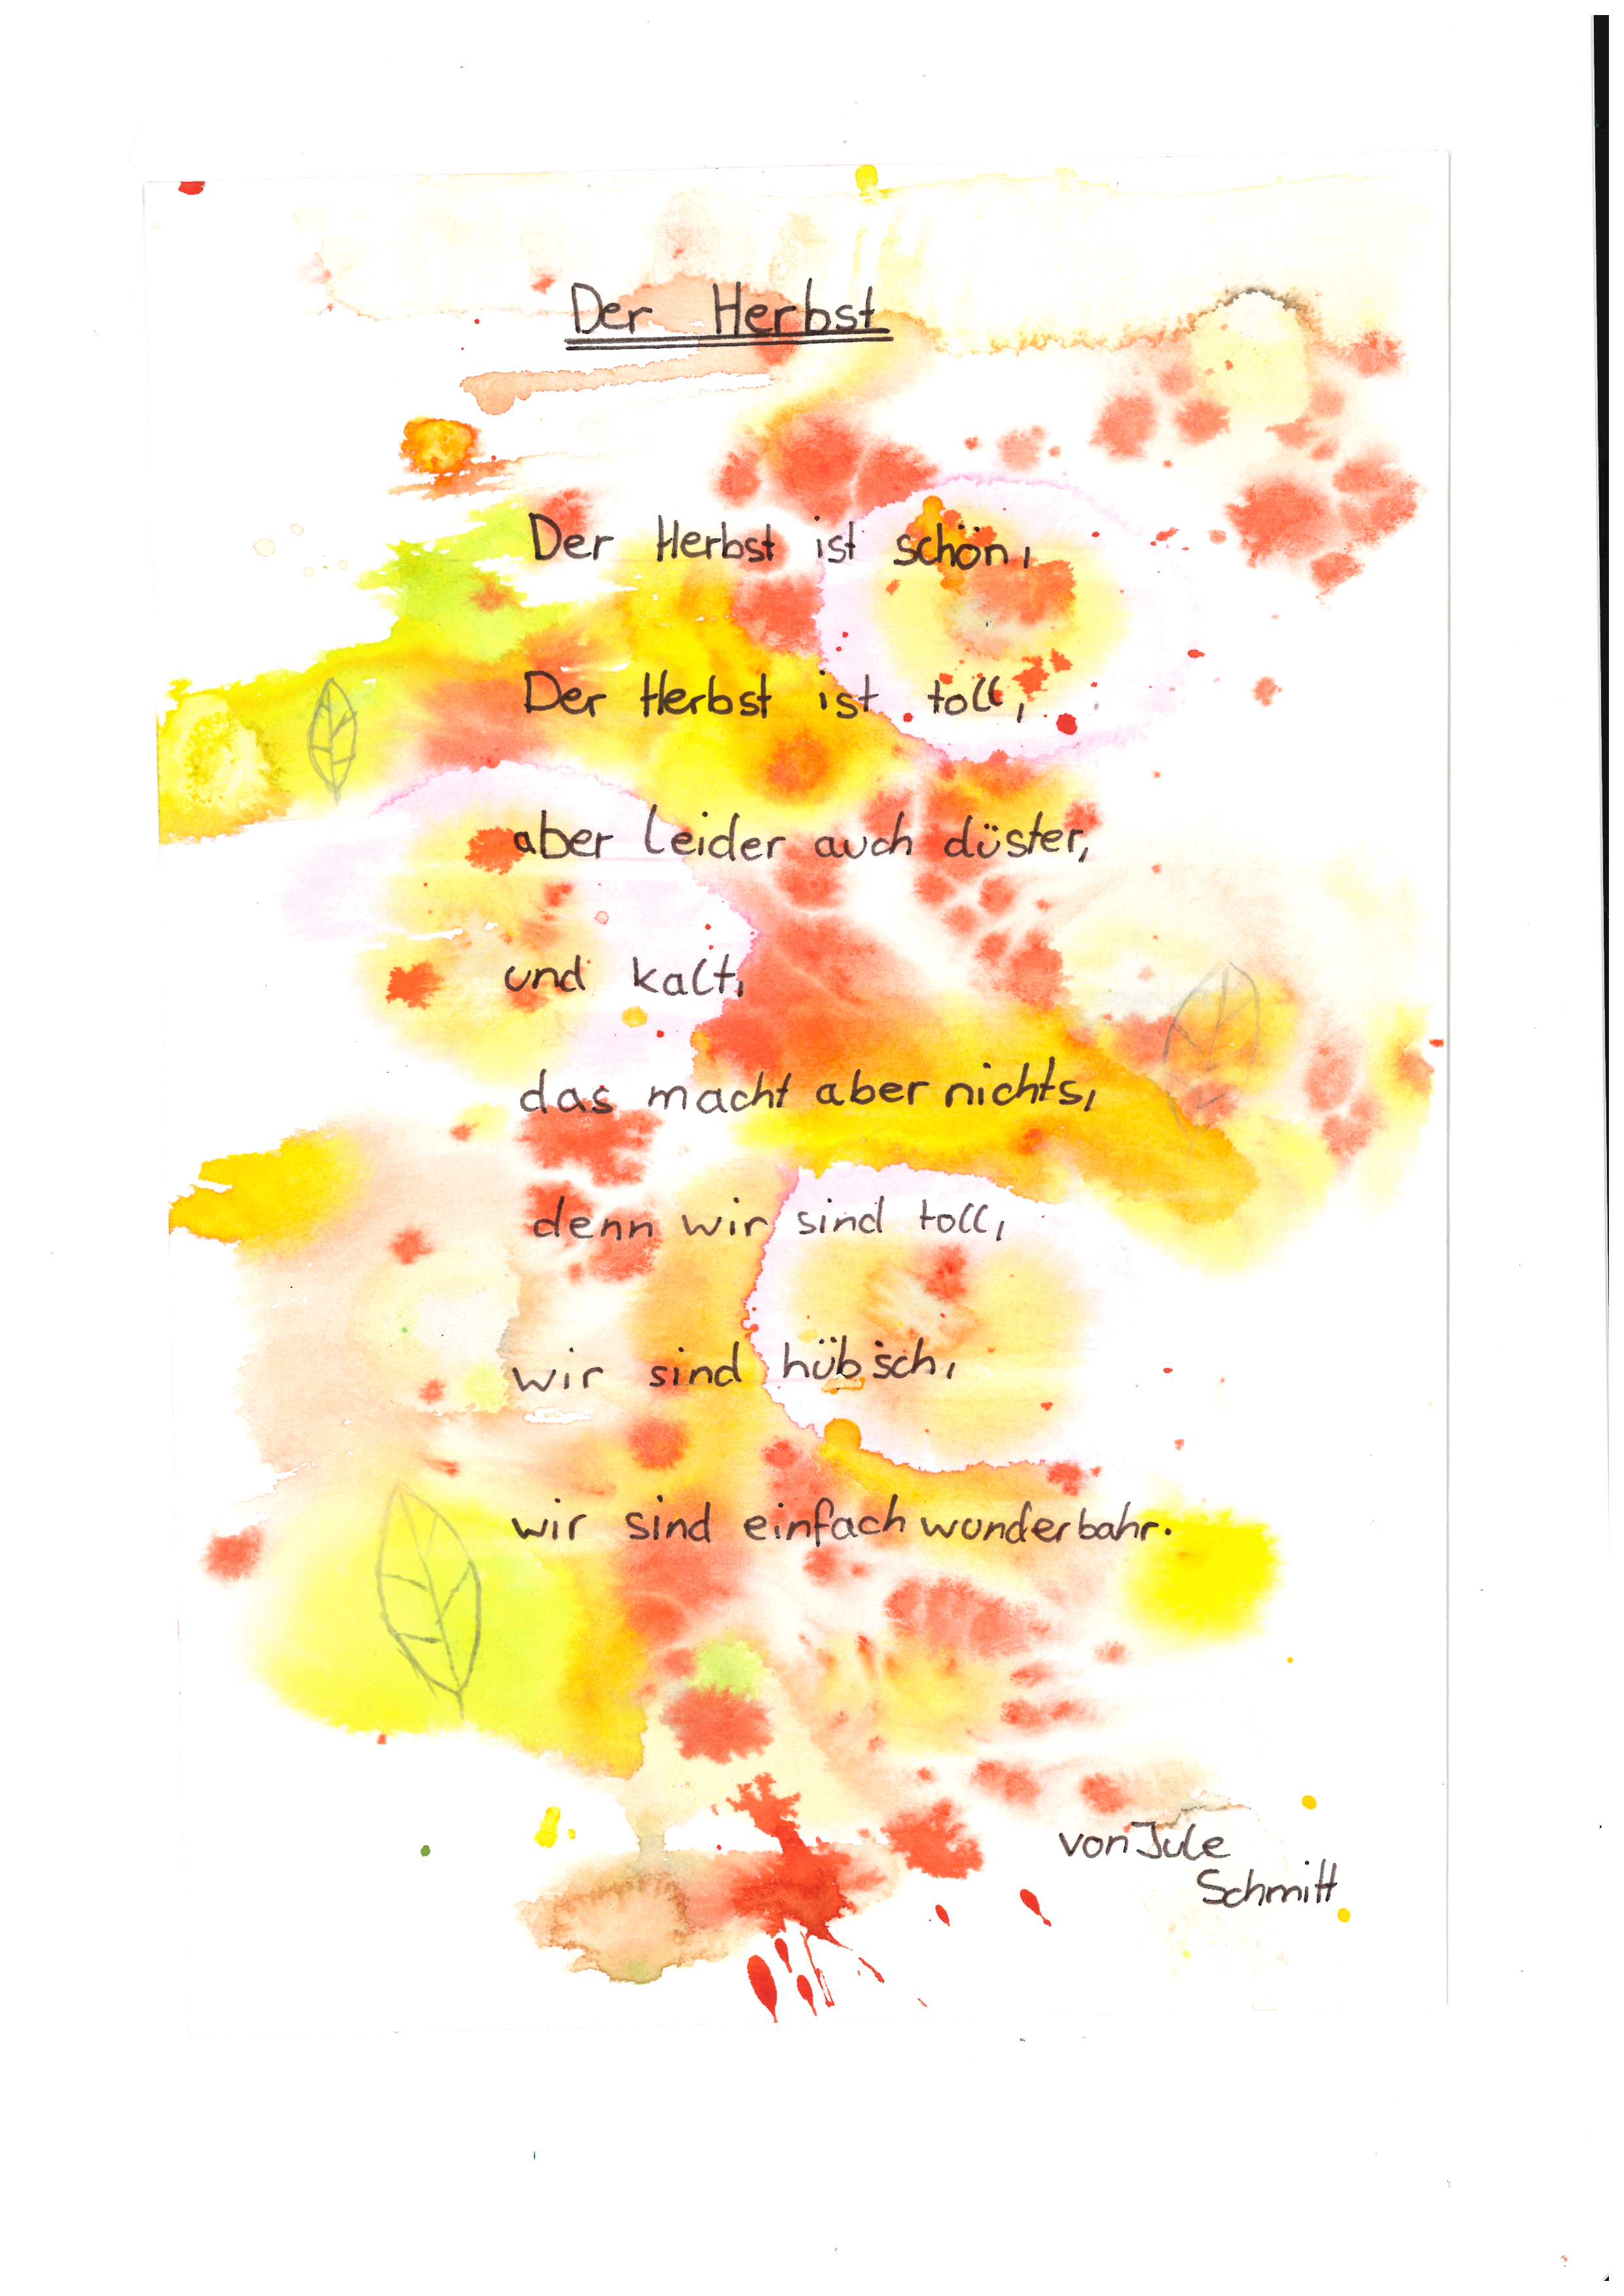 Der Herbst
Der Herbst ist schön,
Der Herbst ist toll,
aber leider auch düster,
und kalt,
das macht aber nichts,
denn wir sind toll,
wir sind hübsch,
wir sind einfach wunderbahr.
von Jule
Schmitt